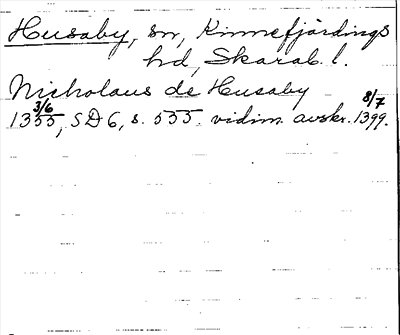 Husaby, sn, Kinnefjärdings
hd, Skarab. l.
Nicholaus de Husaby
1355 3/6, SD 6, s. 555. vidim. avskr. 1399 8/7.